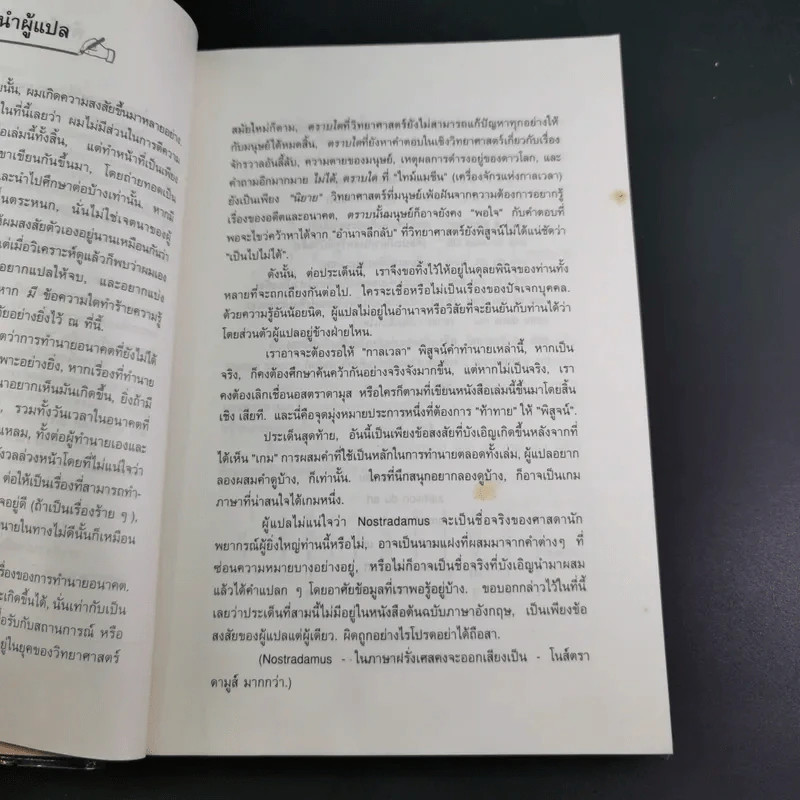 นำผู้แปล
นั้น, ผมเกิดความสงสัยขึ้นมาหลายอย่าง
ในที่นี้เลยว่า ผมไม่มีส่วนในการตีความ
อเล่มนี้ทั้งสิ้น, แต่ทำหน้าที่เป็นเพียง
ขาเขียนกันขึ้นมา, โดยถ่ายทอดเป็น
และนำไปศึกษาต่อบ้างเท่านั้น. หากมี
นตระหนก, นั่นไม่ใช่เจตนาของผู้
ให้ผมสงสัยตัวเองอยู่นานเหมือนกันว่า
ต่เมื่อวิเคราะห์ดูแล้วก็พบว่าผมเอง
อยากแปลให้จบ, และอยากแบ่ง
หาก มี ข้อความใดทำร้ายความรู้
ัยอย่างยิ่งไว้ ณ ที่นี้.
ดว่าการทำนายอนาคตที่ยังไม่ได้
พาะอย่างยิ่ง, หากเรื่องที่ทำนาย
อยากเห็นมันเกิดขึ้น, ยิ่งถ้ามี
, รวมทั้งวันเวลาในอนาคตที่
แหลม, ทั้งต่อผู้ทำนายเองและ
ังวลล่วงหน้าโดยที่ไม่แน่ใจว่า
ต่อให้เป็นเรื่องที่สามารถทำ-
จอยู่ดี (ถ้าเป็นเรื่องร้าย ๆ ),
นายในทางไม่ดีนั้นก็เหมือน
รื่องของการทำนายอนาคต.
ะเกิดขึ้นได้, นั่นเท่ากับเป็น
อรับกับสถานการณ์ หรือ
ยู่ในยุคของวิทยาศาสตร์
สมัยใหม่ก็ตาม, ตราบใดที่วิทยาศาสตร์ยังไม่สามารถแก้ปัญหาทุกอย่างให้
กับมนุษย์ได้หมดสิ้น, ตราบใดที่ยังหาคำตอบในเชิงวิทยาศาสตร์เกี่ยวกับเรื่อง
จักรวาลอันลี้ลับ, ความตายของมนุษย์, เหตุผลการดำรงอยู่ของดาวโลก, และ
คำถามอีกมากมาย ไม่ได้, ตราบใด ที่ "ไทม์แมชีน" (เครื่องจักรแห่งกาลเวลา)
ยังเป็นเพียง "นิยาย" วิทยาศาสตร์ที่มนุษย์เพ้อฝันจากความต้องการอยากรู้
เรื่องของอดีตและอนาคต, ตราบนั้นมนุษย์ก็อาจยังคง "พอใจ" กับคำตอบที่
พอจะไขว่คว้าหาได้จาก "อำนาจลึกลับ" ที่วิทยาศาสตร์ยังพิสูจน์ไม่ได้แน่ชัดว่า
"เป็นไปไม่ได้".
ดังนั้น, ต่อประเด็นนี้, เราจึงขอทิ้งไว้ให้อยู่ในดุลยพินิจของท่านทั้ง
หลายที่จะถกเถียงกันต่อไป. ใครจะเชื่อหรือไม่เป็นเรื่องของปัจเจกบุคคล.
ด้วยความรู้อันน้อยนิด, ผู้แปลไม่อยู่ในอำนาจหรือวิสัยที่จะยืนยันกับท่านได้ว่า
โดยส่วนตัวผู้แปลอยู่ข้างฝ่ายไหน.
เราอาจจะต้องรอให้ "กาลเวลา" พิสูจน์คำทำนายเหล่านี้, หากเป็น
จริง, ก็คงต้องศึกษาค้นคว้ากันอย่างจริงจังมากขึ้น, แต่ถ้าหากไม่เป็นจริง, เรา
คงต้องเลิกเชื่อนอสตราดามุส หรือใครก็ตามที่เขียนหนังสือเล่มนี้ขึ้นมาโดยสิ้น
เชิง เสียที. และนี่คือจุดมุ่งหมายประการหนึ่งที่ต้องการ "ท้าทาย" ให้ "พิสูจน์".
ประเด็นสุดท้าย, อันนี้เป็นเพียงข้อสงสัยที่บังเอิญเกิดขึ้นหลังจากที่
ได้เห็น "เกม" การผสมคำที่ใช้เป็นหลักในการทำนายตลอดทั้งเล่ม, ผู้แปลอยาก
ลองผสมคำดูบ้าง, ก็เท่านั้น. ใครที่นึกสนุกอยากลองดูบ้าง, ก็อาจเป็นเกม
ภาษาที่น่าสนใจได้เกมหนึ่ง.
ผู้แปลไม่แน่ใจว่า Nostradamus จะเป็นชื่อจริงของศาสดานัก
พยากรณ์ผู้ยิ่งใหญ่ท่านนี้หรือไม่, อาจเป็นนามแฝงที่ผสมมาจากคำต่างๆ ที่
ซ่อนความหมายบางอย่างอยู่, หรือไม่ก็อาจเป็นชื่อจริงที่บังเอิญนำมาผสม
แล้วได้คำแปลก ๆ โดยอาศัยข้อมูลที่เราพอรู้อยู่บ้าง. ขอบอกกล่าวไว้ในที่นี้
เลยว่าประเด็นที่สามนี้ไม่มีอยู่ในหนังสือต้นฉบับภาษาอังกฤษ, เป็นเพียงข้อ
สงสัยของผู้แปลแต่ผู้เดียว. ผิดถูกอย่างไรโปรดอย่าได้ถือสา.
(Nostradamus - ในภาษาฝรั่งเศสคงจะออกเสียงเป็น - โนส์ตรา
ดามูส์ มากกว่า.)